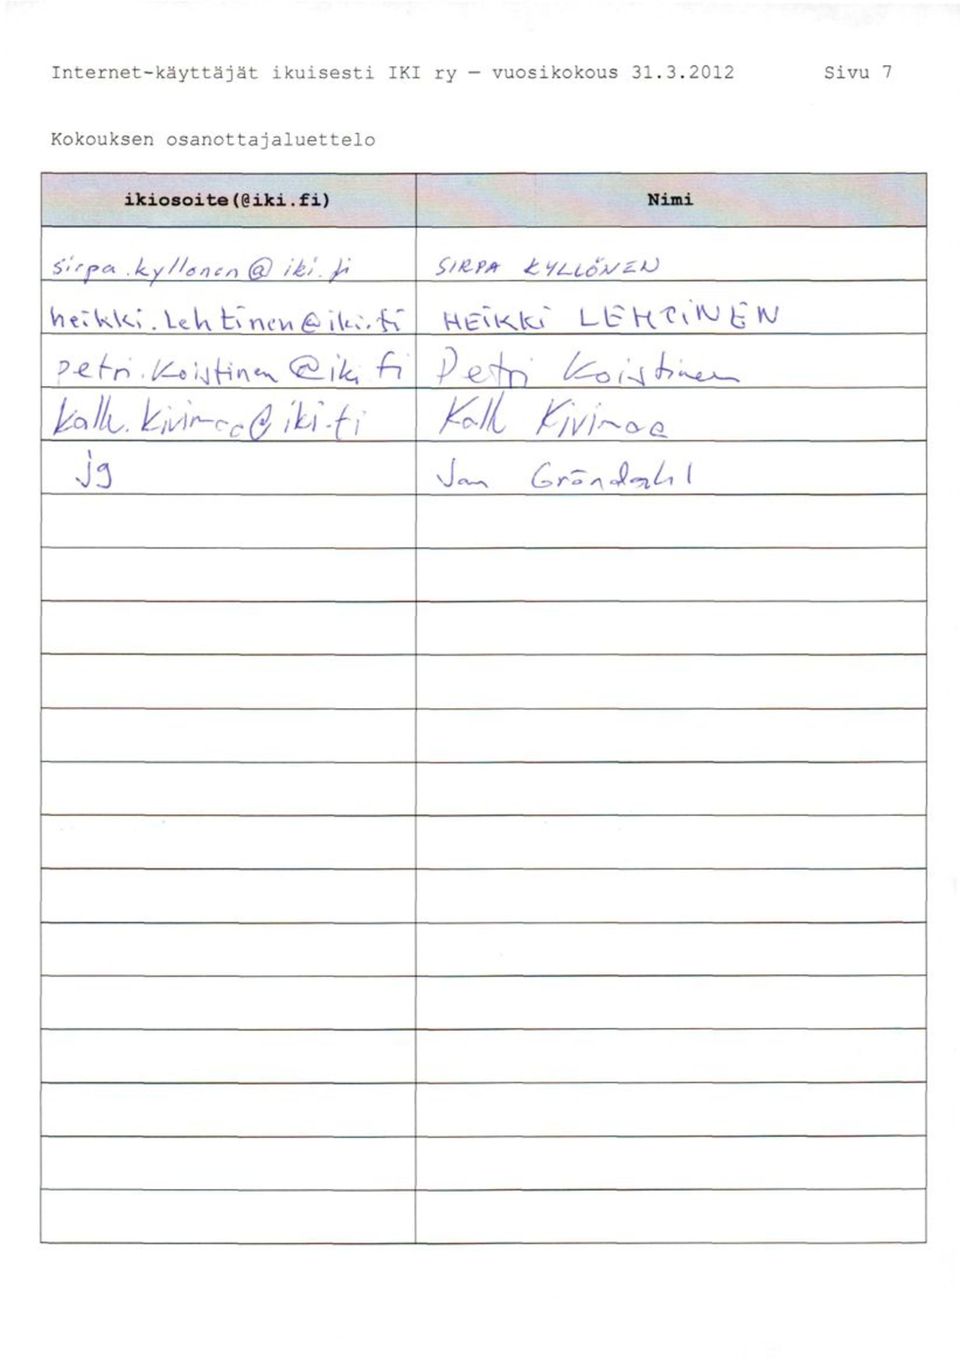 Internet-käyttäjät ikuisesti IKI ry — vuosikokous 31.3.2012 Sivu 7
Kokouksen osanottajaluettelo
ikiosoite(@iki.fi) Nimi
sirpa.kyllonen@iki.fi SIRPA KYLLÖNEN
heikki.lehtinen@iki.fi HEIKKI LEHTINEN
petri.koistinen@iki.fi Petri Koistinen
kalle.kivimaa@iki.fi Kalle Kivimaa
jg Jan Gröndahl